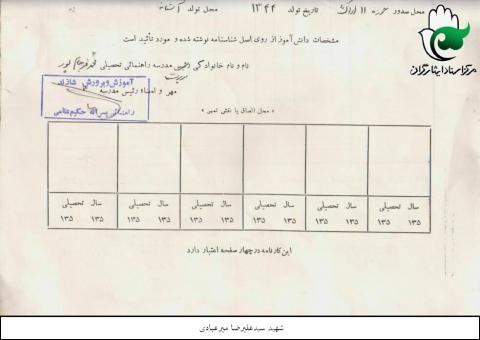 محل صدور حوزه ۱۱ اراک تاریخ تولد ۱۳۴۴ محل تولد آستانه
مشخصات دانش‌آموز از روی اصل شناسنامه نوشته شده و مورد تأئید است
نام و نام خانوادگی رئیس مدرسه راهنمائی تحصیلی
مهر و امضاء رئیس مدرسه
آموزش و پرورش شازند
راهنمائی پسرانه حکیم نظامی
« محل الصاق یا نقش تمبر »
سال تحصیلی سال تحصیلی سال تحصیلی سال تحصیلی سال تحصیلی سال تحصیلی
۱۳۵ ۱۳۵ ۱۳۵ ۱۳۵ ۱۳۵ ۱۳۵ ۱۳۵ ۱۳۵ ۱۳۵ ۱۳۵ ۱۳۵ ۱۳۵
این کارنامه در چهار صفحه اعتبار دارد
مرکز اسناد ایثارگران
شهید سیدعلیرضا میرعبادی